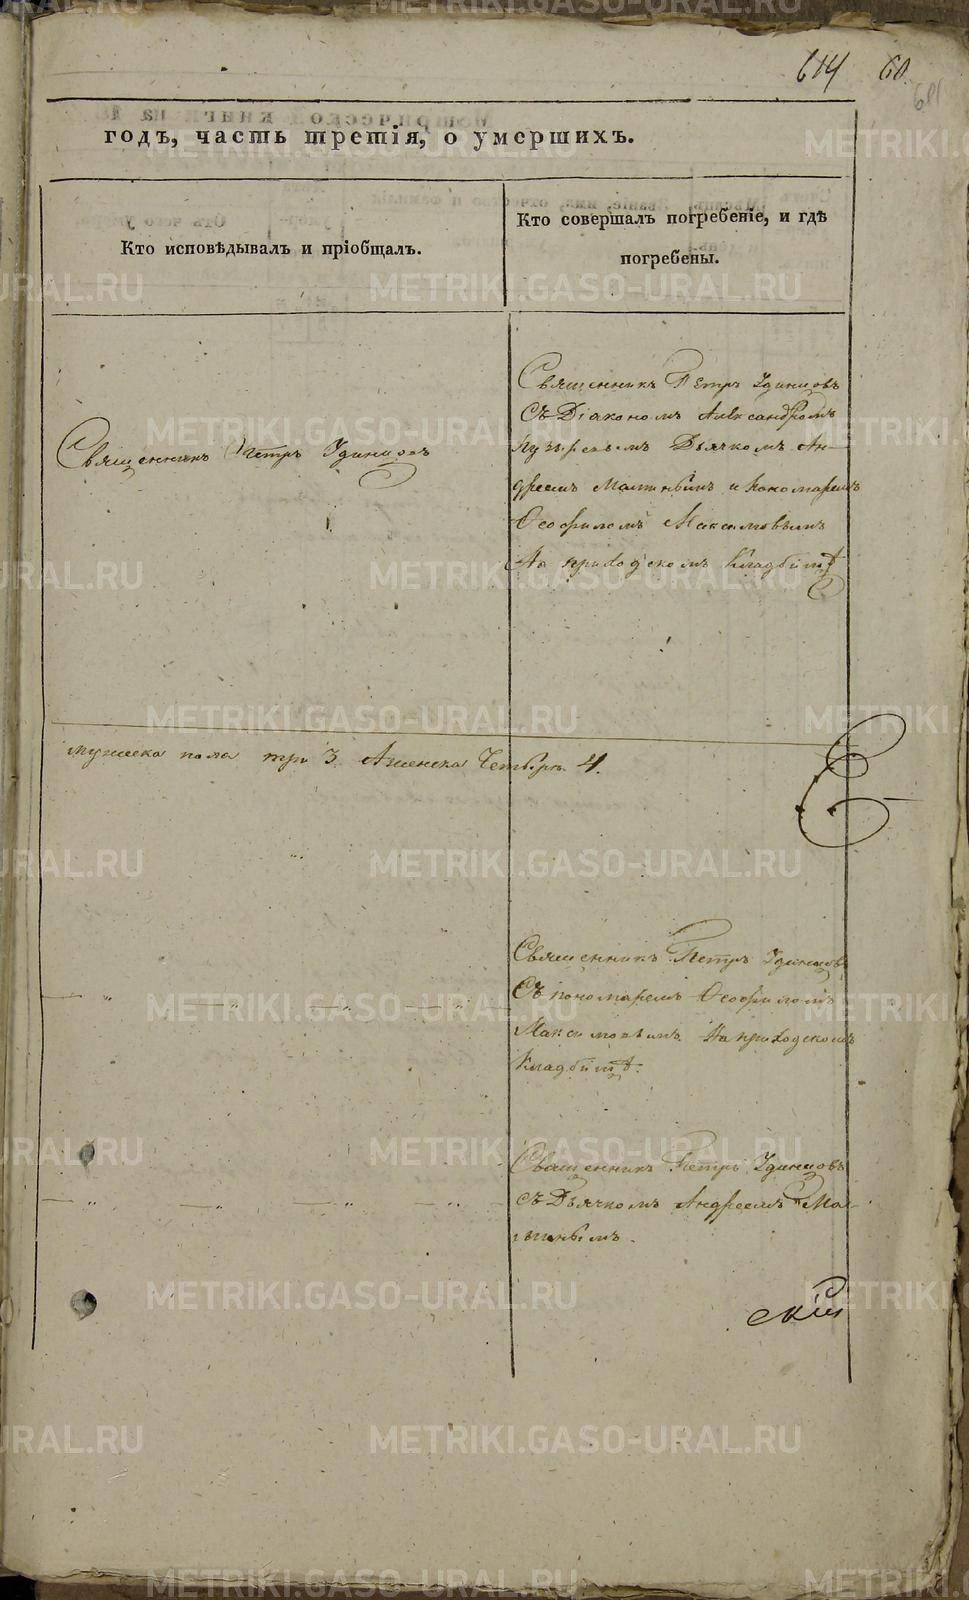 614 60
681
годъ, часть третія, о умершихъ.
Кто исповѣдывалъ и пріобщалъ.
Кто совершалъ погребеніе, и гдѣ
погребены.
Священникъ Петръ Удинцовъ
Священникъ Петръ Удинцовъ
Съ Діакономъ Александромъ
Дьячкомъ Ан-
дреемъ и Пономаремъ
Ѳеофиломъ Максимовымъ
На приходскомъ Кладбищѣ
мужеска пола три 3. А женска Четыре 4.
Священникъ Петръ Удинцовъ
Съ пономаремъ Ѳеофиломъ
Максимовымъ. На приходскомъ
Кладбищѣ.
Священникъ Петръ Удинцовъ
Съ Дьячкомъ Андреемъ
скій
METRIKI.GASO-URAL.RU